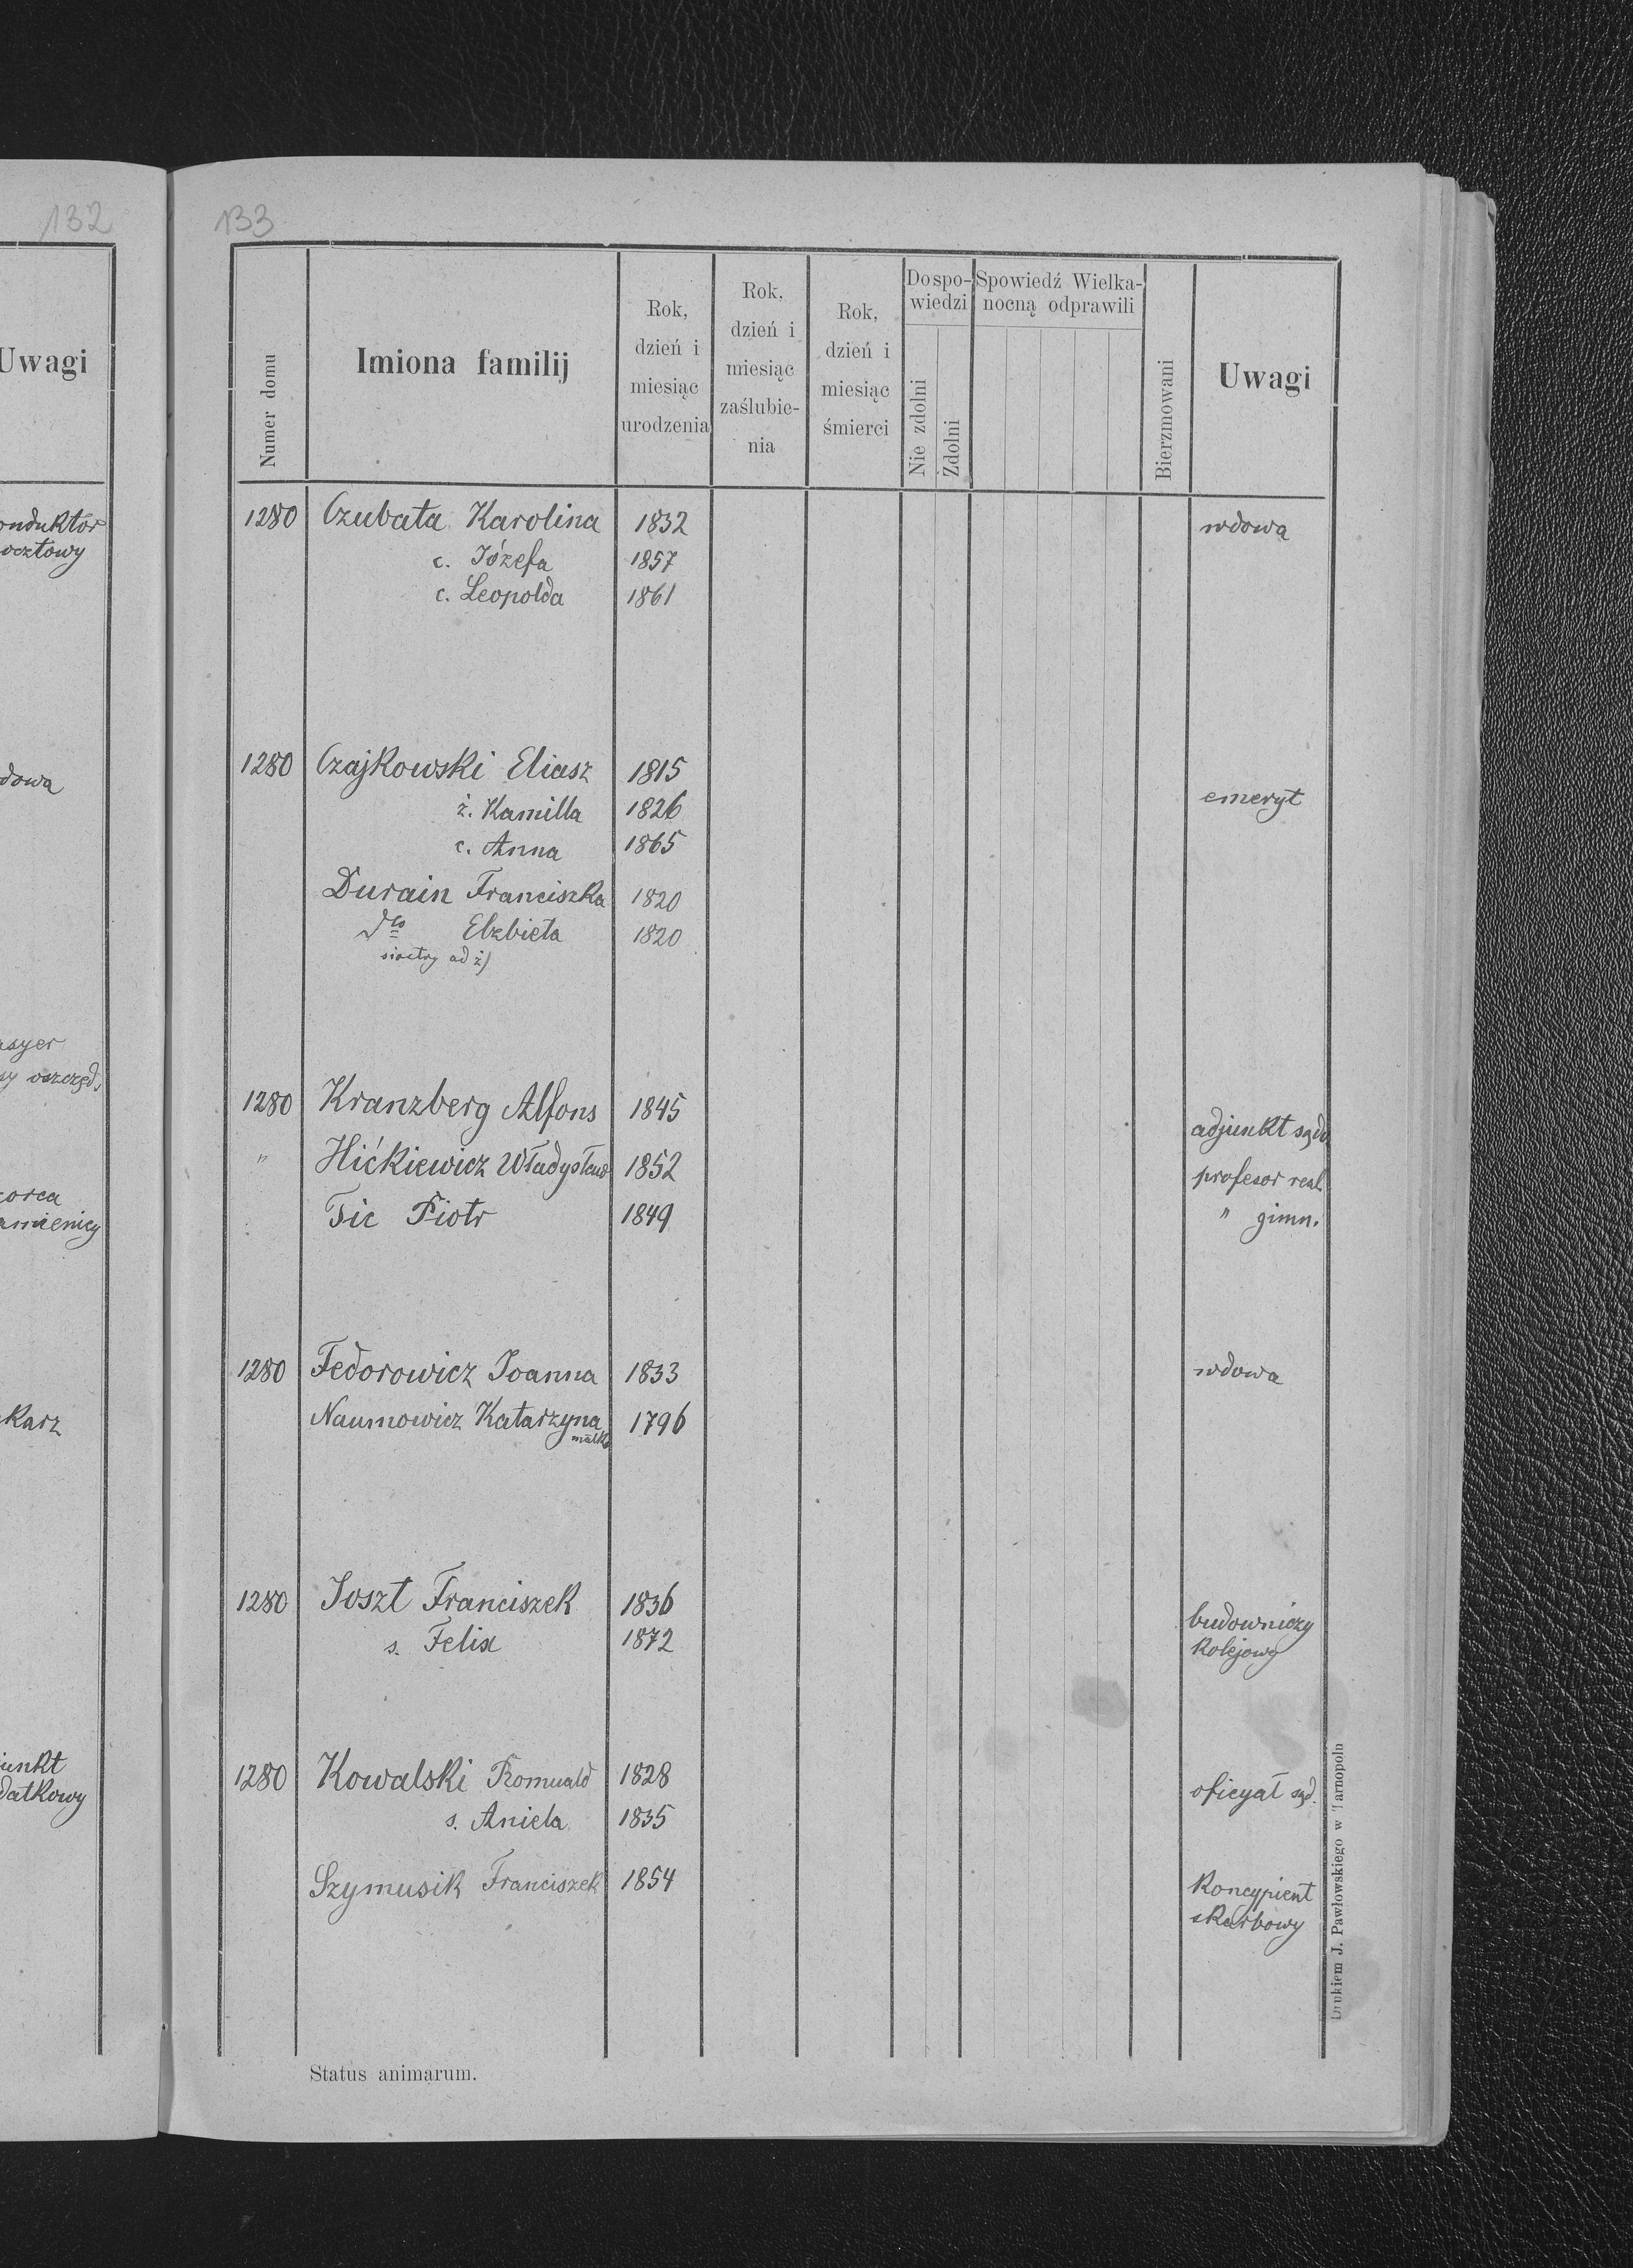 132
Uwagi
133
Numer domu
Imiona familij
Rok,
dzień i
miesiąc
urodzenia
Rok,
dzień i
miesiąc
zaślubie-
nia
Rok,
dzień i
miesiąc
śmierci
Do spo-
wiedzi
Nie zdolni
Zdolni
Spowiedź Wielka-
nocną odprawili
Bierzmowani
Uwagi
1280 Czubata Karolina 1832 wdowa
c. Józefa 1857
c. Leopolda 1861
1280 Czajkowski Eliasz 1815
ż. Kamilla 1826 emeryt
c. Anna 1865
Durain Franciszka 1820
dto Elzbieta 1820
siostry ad ż)
1280 Kranzberg Alfons 1845 adjunkt sąd.
" Hićkiewicz Władysław 1852 profesor real.
Fic Piotr 1849 " gimn.
1280 Fedorowicz Joanna 1833 wdowa
Naumowicz Katarzyna 1796
matka
1280 Joszt Franciszek 1836 budowniczy
s. Felix 1872 kolejowy
1280 Kowalski Romuald 1828 oficyał sąd.
s. Aniela 1835
Szymusik Franciszek 1854 koncypient
skarbowy
onduktor
ocztowy
dowa
asyer
sy oszczęd.
zorca
amienicy
karz
junkt
datkowy
Status animarum.
Drukiem J. Pawłowskiego w Tarnopoln